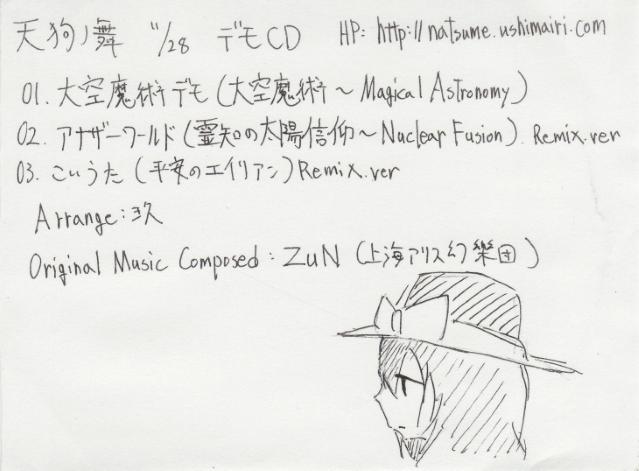 天狗ノ舞 11/28 デモCD HP: http://natsume.ushimairi.com
01. 大空魔術デモ(大空魔術～Magical Astronomy)
02. アナザーワールド(霊知の太陽信仰～Nuclear Fusion) Remix.ver
03. こいうた(平安のエイリアン)Remix.ver
Arrange:
Original Music Composed: ZUN (上海アリス幻樂団)